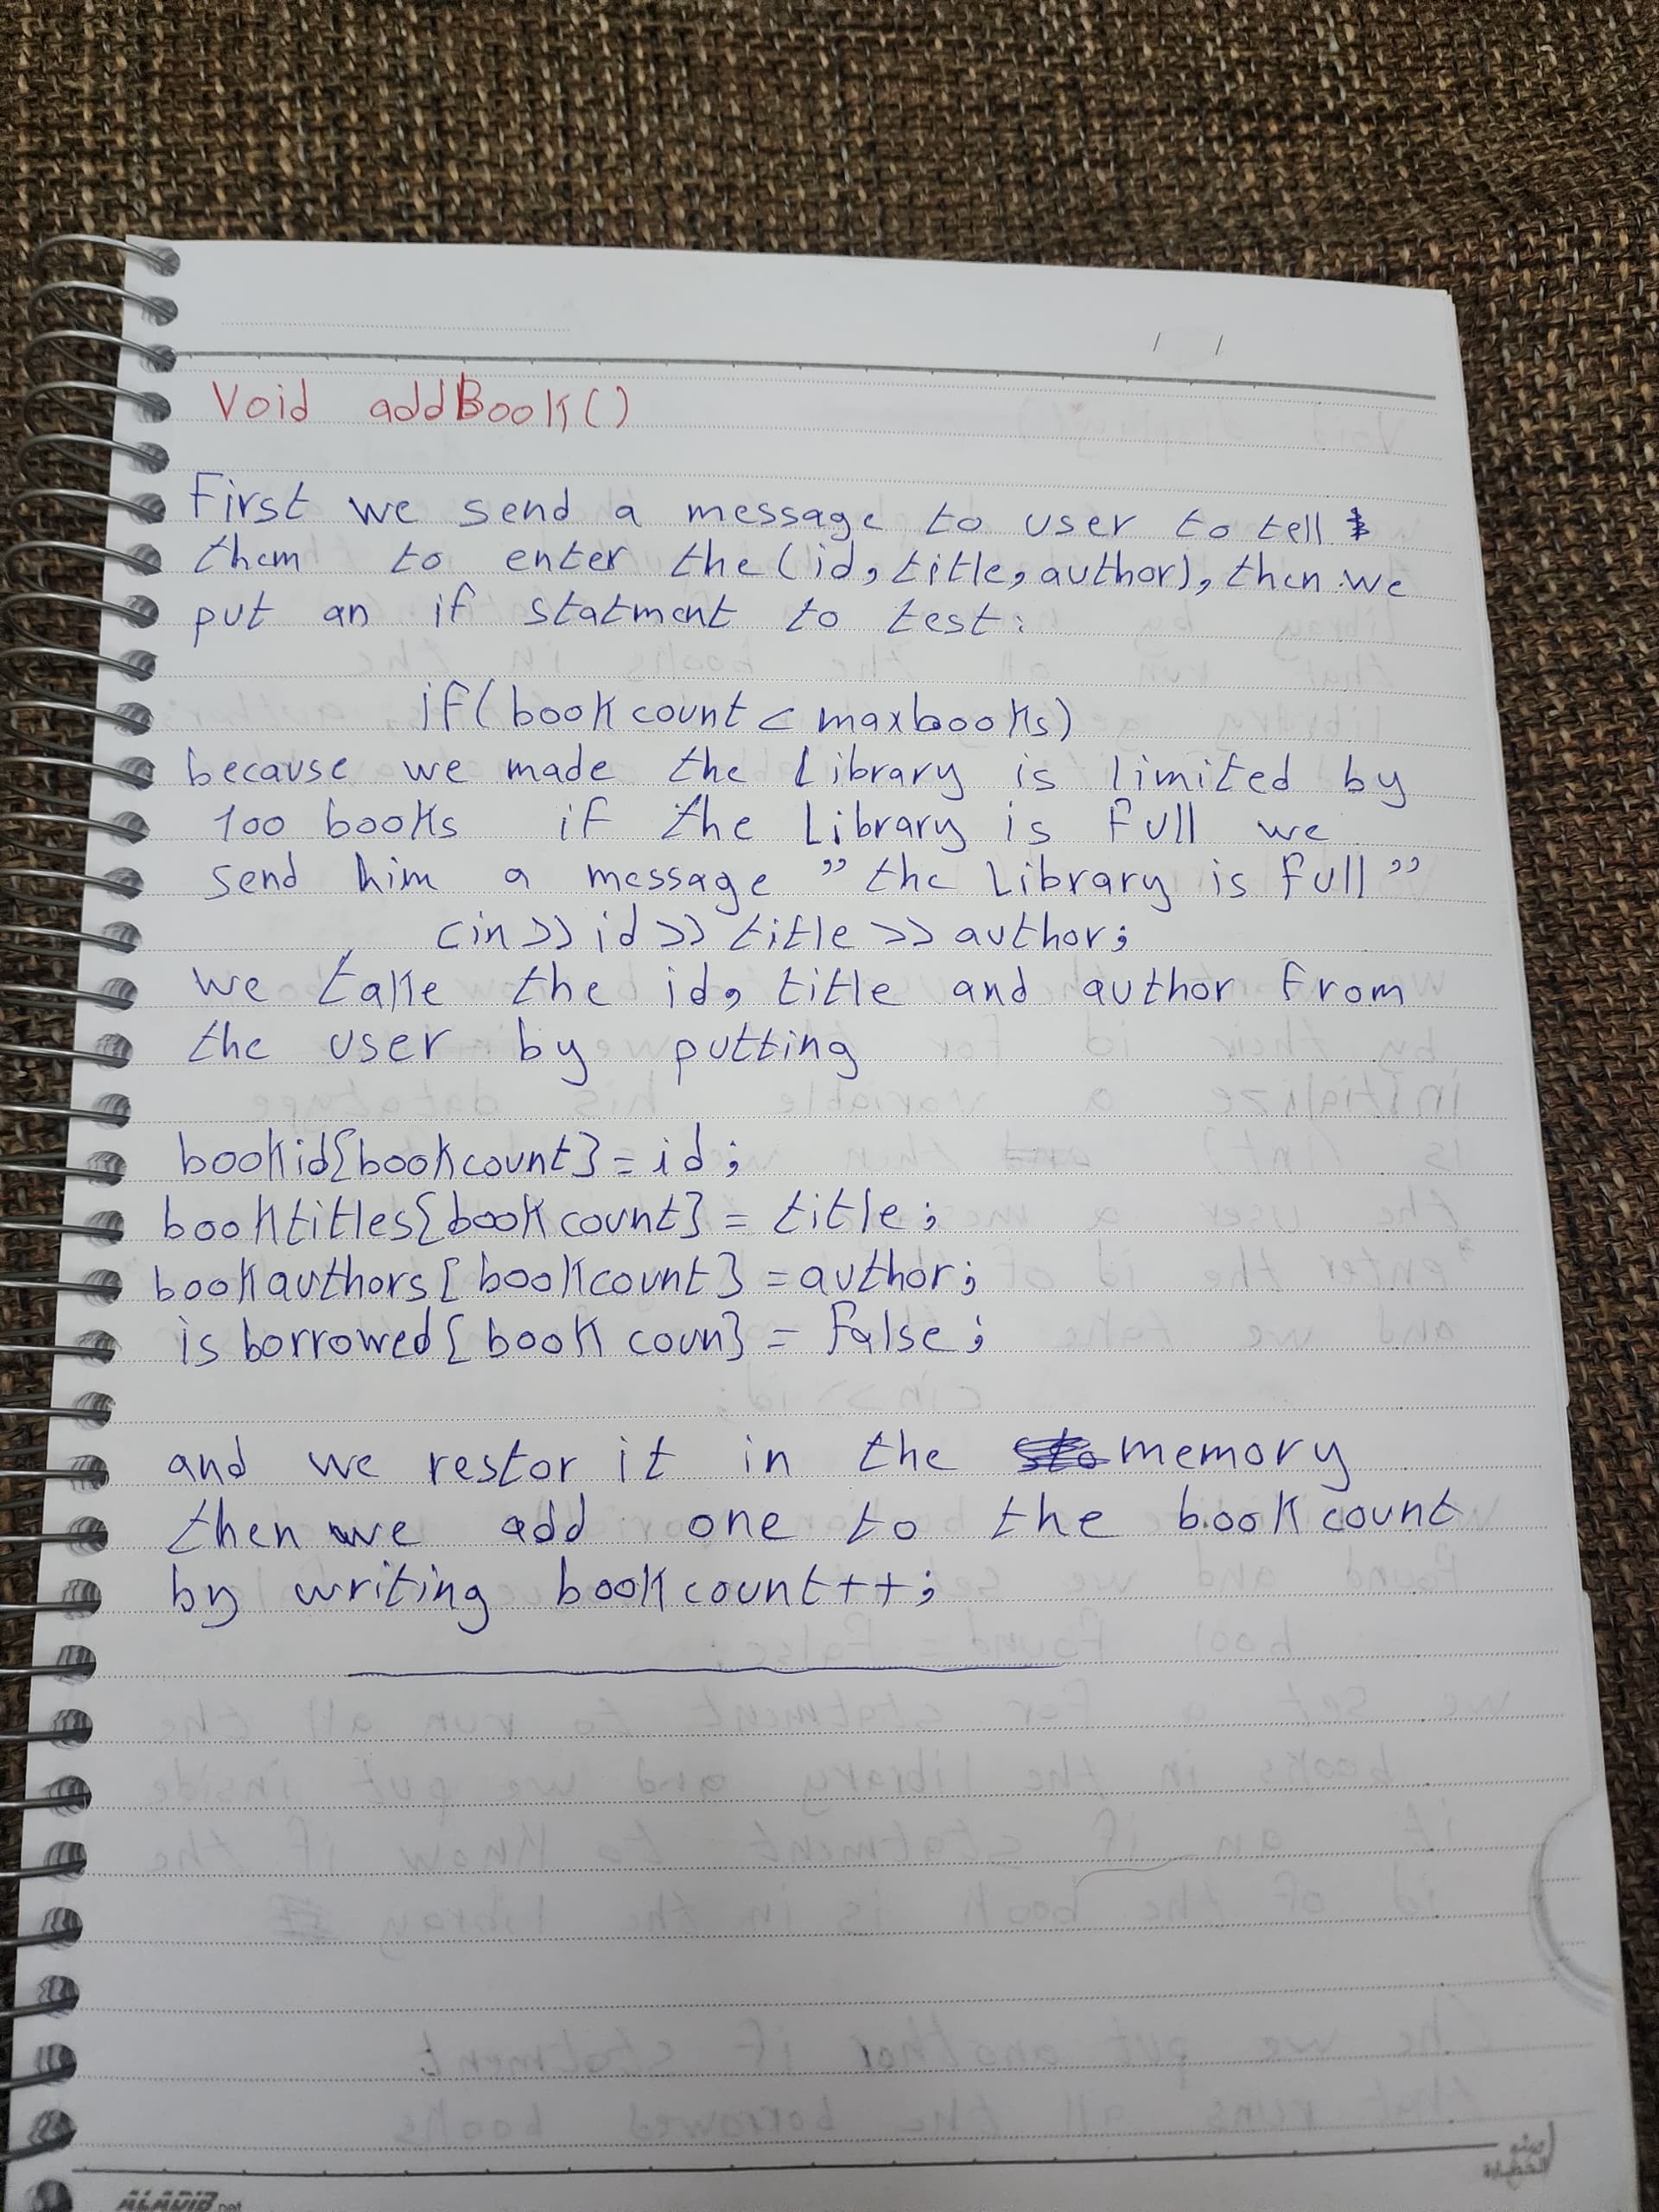 Void addBook()
First we send a message to user to tell
them to enter the (id, title, author), then we
put an if statment to test:
if(bookcount < maxbooks)
because we made the Library is limited by
100 books if the Library is full we
send him a message "the Library is full"
cin>> id>> title >> author;
we take the id, title and author from
the user by putting
bookid[bookcount] = id;
booktitles[bookcount] = title;
bookauthors[bookcount] = author;
is borrowed[book coun] = False;
and we restor it in the memory
then we add one to the bookcount
by writing bookcount++;
ALADIB.net